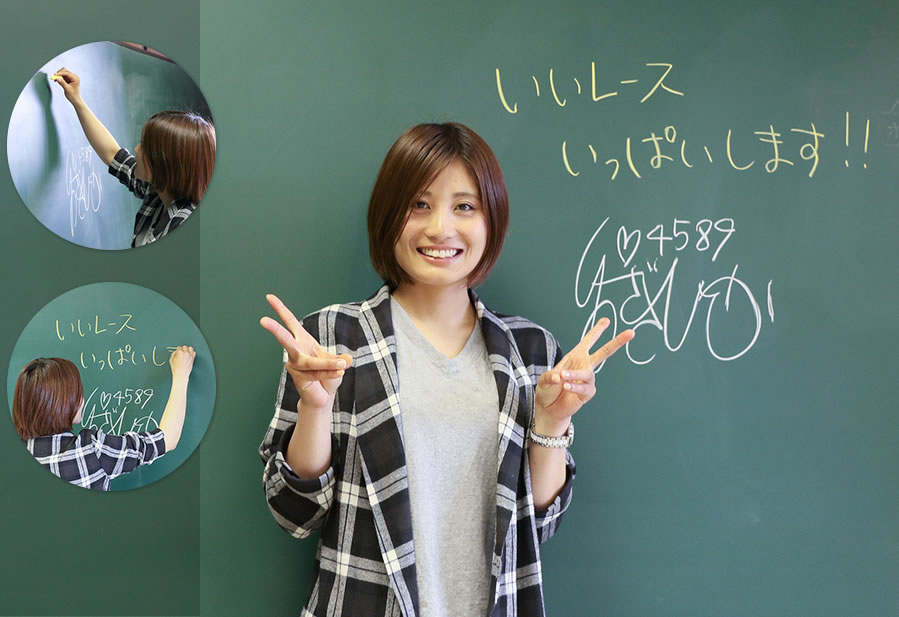 いいレース
いっぱいします!!
♡4589
4589
いいレース
いっぱいし
♡4589